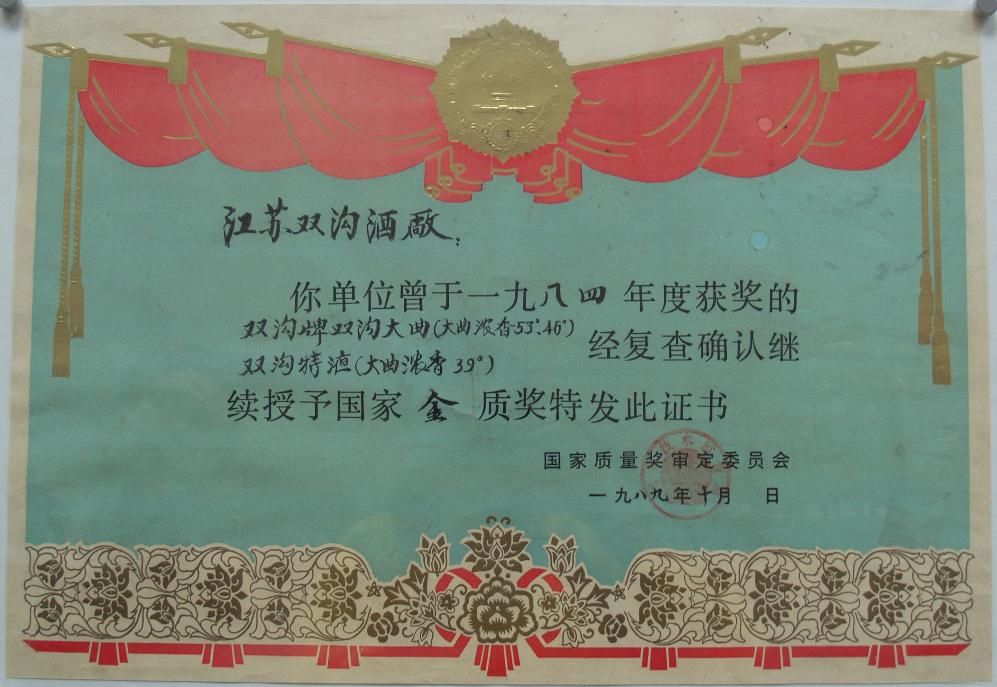 江苏双沟酒厰：
你单位曾于一九八四年度获奖的
双沟牌双沟大曲(大曲浓香53°.46°)
双沟特液(大曲浓香39°)
经复查确认继
续授予国家金质奖特发此证书
国家质量奖审定委员会
一九八九年十月 日